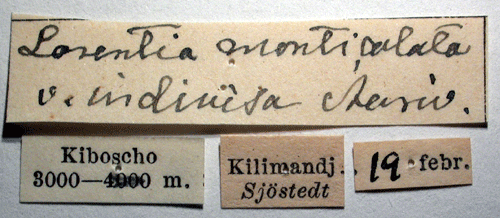 Larentia monticolata
v. indivisa Auriv.
Kiboscho
3000—4000 m.
Kilimandj.
Sjöstedt
19 febr.